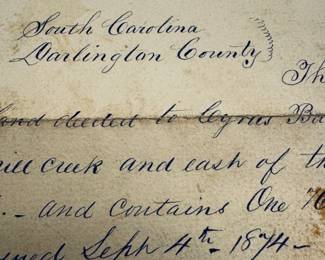 South Carolina
Darlington County
Th
land deeded to Cyrus Ba
mill creek and east of th
- and contains One H
Sept 4th - 1874 -